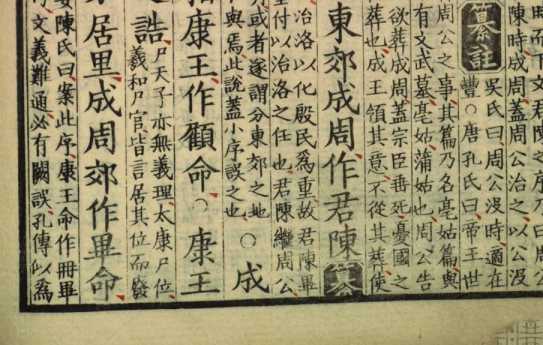 時而下文君陳之序乃曰
陳時成周蓋周公治之以公没
纂註吳氏曰周公没時適在
豐○唐孔氏曰帝王世
周公之事其篇乃名亳姑篇與
有文武墓亳姑蒲姑也周公告
欲葬成周蓋宗臣垂死憂國之
葬也成王領其意不從其葬使
東郊成周作君陳纂
治洛以化殷民爲重故君陳畢
付以治洛之任也君陳繼周公
或者遂謂分東郊之地
與焉此說蓋小序誤之也
○成
康王作顧命○康王
之誥
尸天子亦無義理太康尸位
羲和尸官皆言居其位而發
居里成周郊作畢命
陳氏曰案此序康王命作冊畢
文義難通必有闕誤孔傳以爲